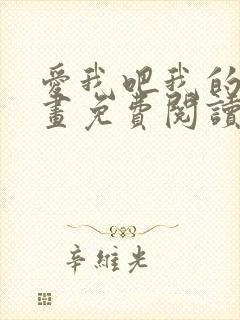 愛我吧我的
畫免費閱讀
辛維光